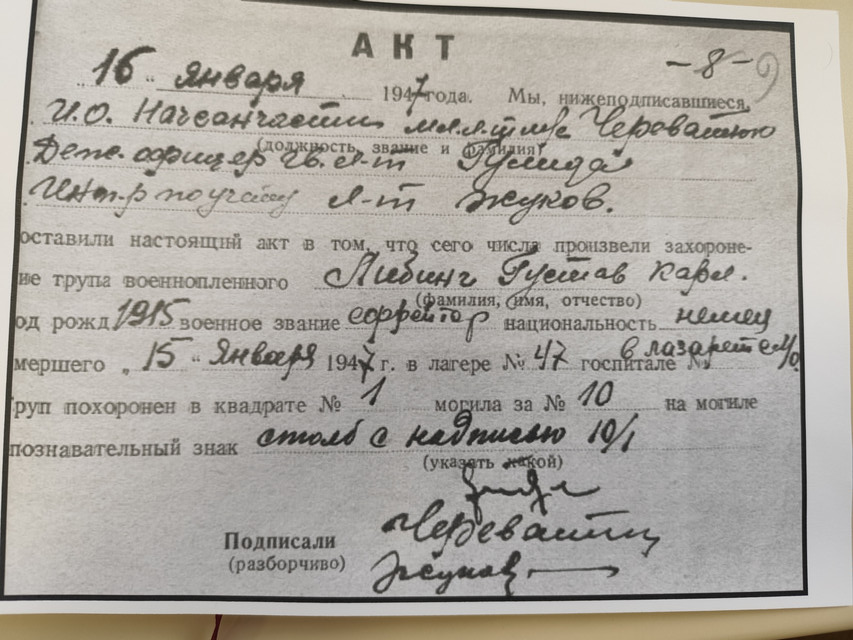 АКТ
-8- 9
„16“ января 1947 года. Мы, нижеподписавшиеся,
И.О. Начсанчасти Черевашею
(должность, звание и фамилия)
Деж. офицер гв. л-т
по учету л-т Жуков.
оставили настоящий акт в том, что сего числа произвели захороне-
ие трупа военнопленного Либинг Густав Карл.
(фамилия, имя, отчество)
од рожд 1915 военное звание ефрейтор национальность немец
мершего „15“ января 1947 г. в лагере № 47 госпитале № в лазарете
руп похоронен в квадрате № 1 могила за № 10 на могиле
познавательный знак столб с надписью 10/1
(указать какой)
Подписали
(разборчиво)
Жуков